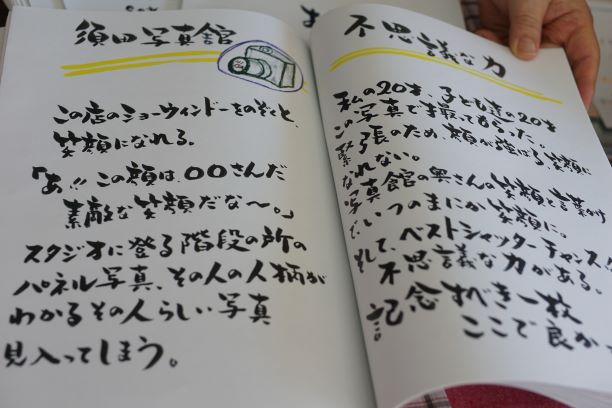 須田写真館
この店のショーウィンドーをのぞくと、
笑顔になれる。
「あ!! この顔は、〇〇さんだ
素敵な笑顔だな〜。」
スタジオに登る階段の所の
パネル写真、その人の人柄が
わかるその人らしい写真
見入ってしまう。
不思議な力
私の20才、子ども達の20才
この写真で撮ってもらった。
緊張のため、顔が強ばる笑顔に
なれない。
写真館の奥さんの笑顔と言葉か
だいつのまにか笑顔に。
そして、ベストシャッターチャンス
不思議な力がある。
記念すべき一枚
ここで良か